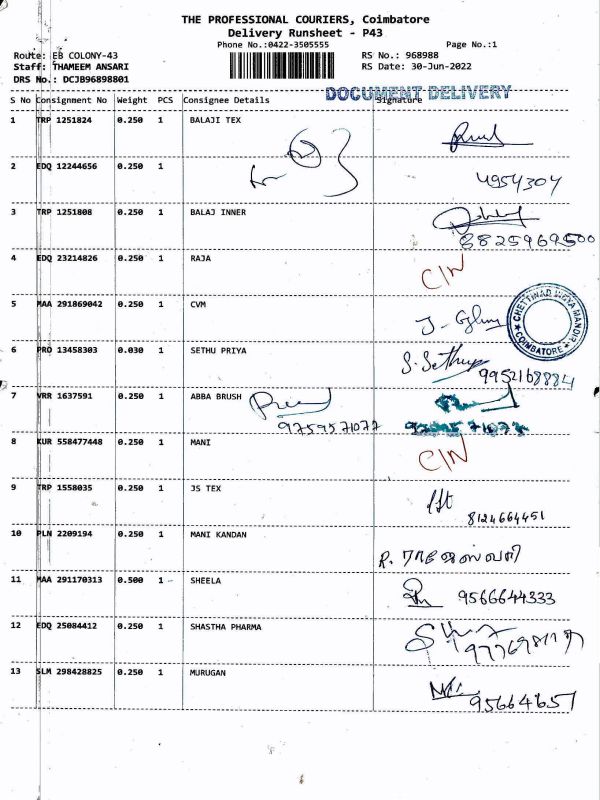 THE PROFESSIONAL COURIERS, Coimbatore
Delivery Runsheet - P43
Phone No.:0422-3505555 Page No.:1
Route: EB COLONY-43 RS No.: 968988
Staff: THAMEEM ANSARI RS Date: 30-Jun-2022
DRS No.: DCJB96898801
DOCUMENT DELIVERY
S No Consignment No Weight PCS Consignee Details Signature
1 TRP 1251824 0.250 1 BALAJI TEX
2 EDQ 12244656 0.250 1 4954304
3 TRP 1251808 0.250 1 BALAJ INNER
8825969500
4 EDQ 23214826 0.250 1 RAJA CIN
5 MAA 291869042 0.250 1 CVM
CHETTINAD VIDYA MANDIR COIMBATORE
6 PRO 13458303 0.030 1 SETHU PRIYA S. Sethup
9952168884
7 VRR 1637591 0.250 1 ABBA BRUSH
9759571077
8 KUR 558477448 0.250 1 MANI CIN
9 TRP 1558035 0.250 1 JS TEX
8124664451
10 PLN 2209194 0.250 1 MANI KANDAN
R. ராஜேஸ்வரி
11 MAA 291170313 0.500 1 SHEELA 9566644333
12 EDQ 25084412 0.250 1 SHASTHA PHARMA
13 SLM 298428825 0.250 1 MURUGAN
95664657